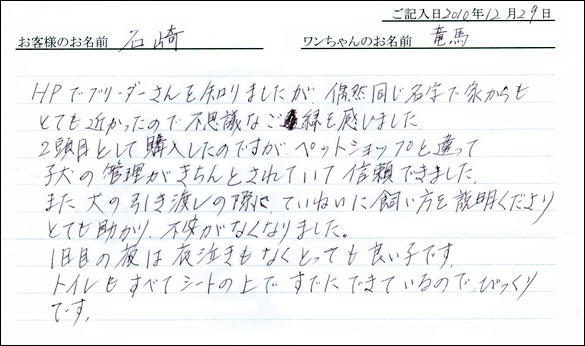 ご記入日2010年12月29日
お客様のお名前 石崎 ワンちゃんのお名前 竜馬
HPでブリーダーさんを知りましたが 偶然同じ名字で家からも
とても近かったので不思議なご縁を感じました
2頭目として購入したのですが、ペットショップと違って
子犬の管理がきちんとされていて信頼できました。
また犬の引き渡しの際に、ていねいに飼い方を説明くださり
とても助かり、不安がなくなりました。
1日目の夜は夜泣きもなくとっても良い子です。
トイレもすべてシートの上ですでにできているので、びっくり
です。